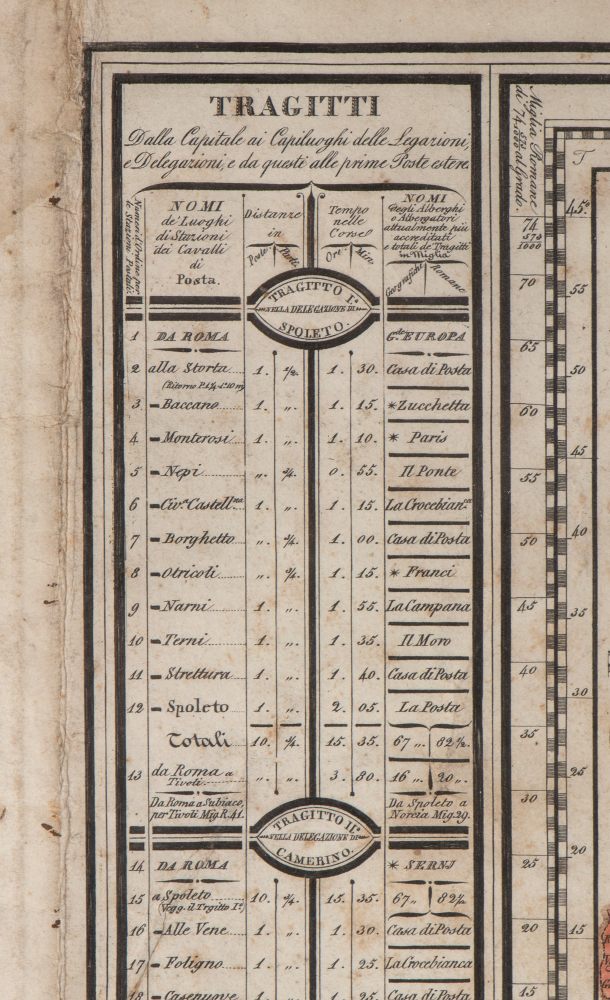 TRAGITTI
Dalla Capitale ai Capiluoghi delle Legazioni,
e Delegazioni, e da questi alle prime Poste estere.
Numeri d'Ordine per
le Stazioni Postali.
NOMI
de' Luoghi
di Stazioni
dei Cavalli
di
Posta.
Distanze
in
Poste Parti
Tempo
nelle
Corse
Ore Min
NOMI
degli Alberghi
o Albergatori
attualmente più
accreditati
e totali de Tragitti
in Miglia
Geografiche Romane
TRAGITTO I.º
NELLA DELEGAZIONE DI
SPOLETO.
1 DA ROMA G.de EUROPA
2 alla Storta 1. 2/2. 1. 30. Casa di Posta
(Ritorno P. 1¼
3. Baccano 1. „. 1. 15. *Zucchetta
4 Monterosi 1. „. 1. 10. * Paris
5 Nepi „. ¾. 0. 55. Il Ponte
6 Civ.a Castell.na 1. „. 1. 15. La Crocebian.ca
7 Borghetto „. ¾. 1. 00. Casa di Posta
8 Otricoli „. ¾. 1. 15. * Franci
9 Narni 1. „. 1. 55. La Campana
10 Terni 1. „. 1. 35. Il Moro
11 Strettura 1. „. 1. 40. Casa di Posta
12 Spoleto 1. „. 2. 05. La Posta
Totali 10. ¾. 15. 35. 67 „. 82½.
13 da Roma a
Tivoli „. „. 3. 80. 16 „. 20 „.
Da Roma a Subiaco,
per Tivoli Mig. R. 41.
Da Spoleto a
Norcia Mig. 29.
TRAGITTO II.º
NELLA DELEGAZIONE DI
CAMERINO.
14 DA ROMA * SERNJ
15 a Spoleto 10. ¾. 15. 35. 67 „. 82½
(Vegg. il Trgitto I.º)
16 Alle Vene 1. „. 1. 30. Casa di Posta
17 Foligno 1. „. 1. 25. La Crocebianca
18 Casenuove 1. „. 1. 25. Casa di Posta
Miglia Romane
al Grado.
74
579
1000
70
65
60
55
50
45
40
35
30
25
20
15
T
45.º
55
50
45
40
35
30
25
20
15